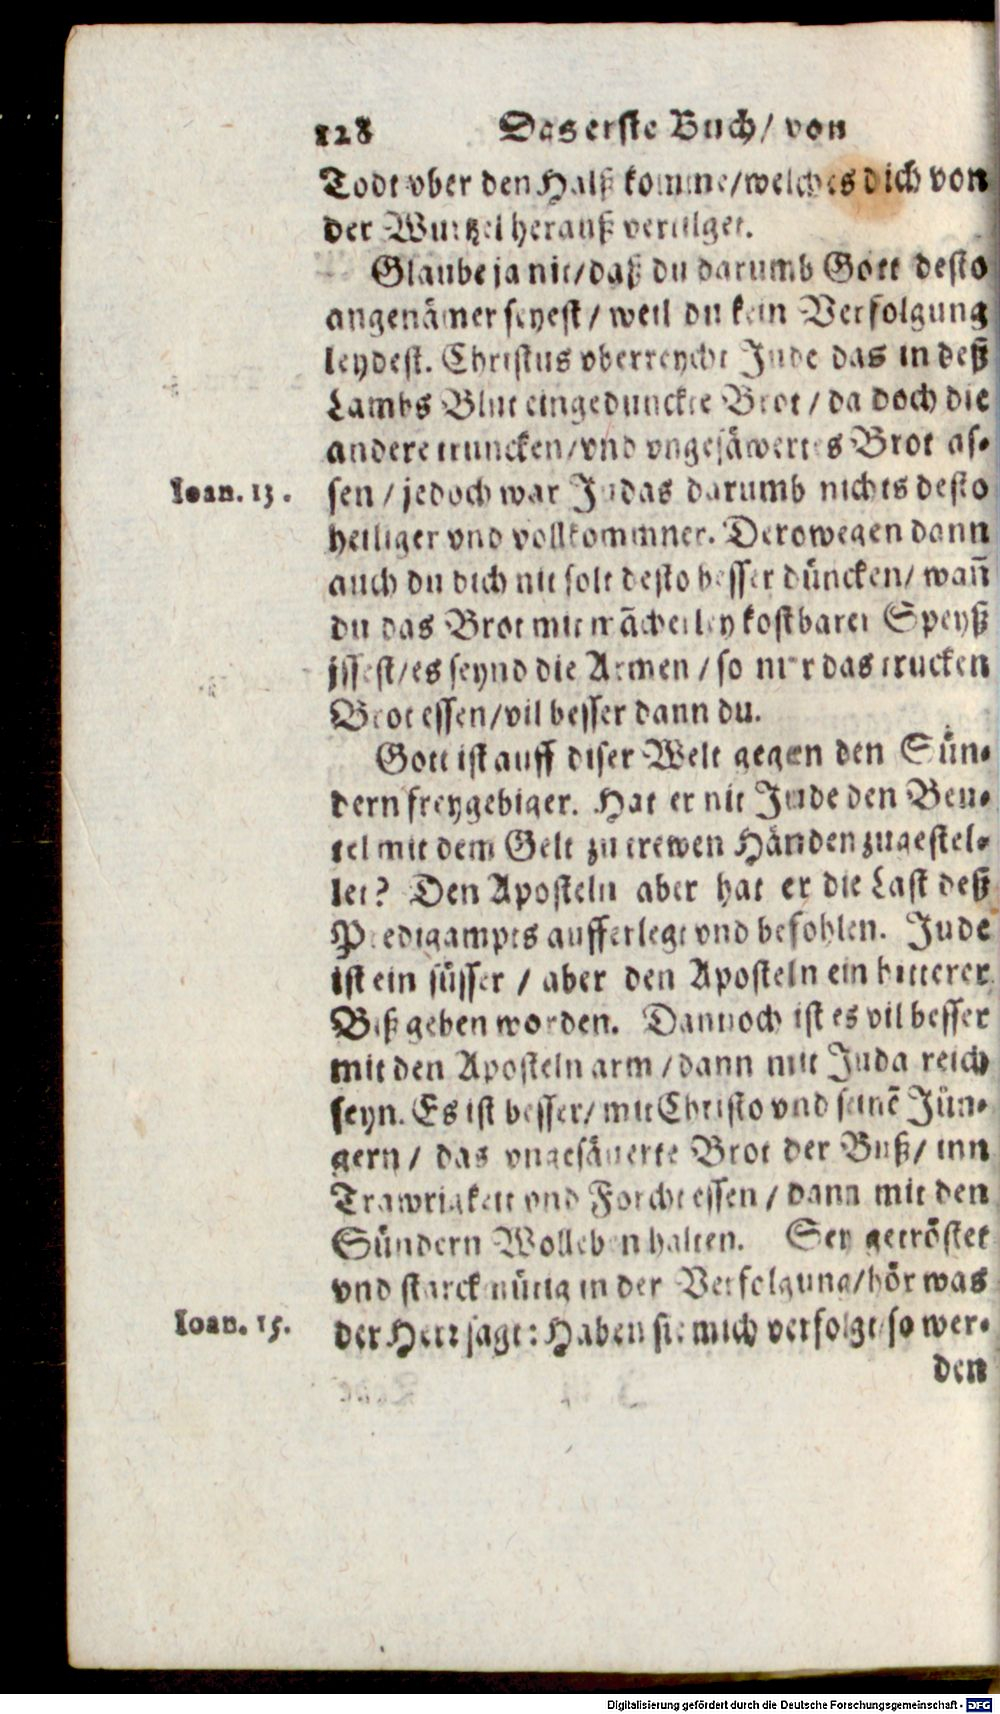 128 Das erste Buch / von
Todt vber den Halß komme / welches dich von
der Wurtzel herauß vertilget.
Glaube ja nit / daß du darumb Gott desto
angenämer seyest / weil du kein Verfolgung
leydest. Christus vberreycht Jude das in deß
Lambs Blut eingedunckte Brot / da doch die
andere truncken / vnd vngesäwertes Brot as-
Ioan. 13. sen / jedoch war Judas darumb nichts desto
heiliger vnd vollkommner. Derowegen dann
auch du dich nit solt desto besser düncken / wañ
du das Brot mit mãcherley kostbarer Speyß
jssest / es seynd die Armen / so nur das trucken
Brot essen / vil besser dann du.
Gott ist auff diser Welt gegen den Sün-
dern freygebiger. Hat er nit Jude den Beu-
tel mit dem Gelt zu trewen Händen zugestel-
let? Den Aposteln aber hat er die Last deß
Predigampts aufferlegt vnd befohlen. Jude
ist ein süsser / aber den Aposteln ein bitterer
Biß geben worden. Dannoch ist es vil besser
mit den Aposteln arm / dann mit Juda reich
seyn. Es ist besser / mit Christo vnd seinẽ Jün-
gern / das vngesäuerte Brot der Buß / inn
Trawrigkeit vnd Forcht essen / dann mit den
Sündern Wolleben halten. Sey getröstet
vnd starckmütig in der Verfolgung / hör was
Ioan. 15. der Herr sagt: Haben sie mich verfolgt / so wer-
den
Digitalisierung gefördert durch die Deutsche Forschungsgemeinschaft - DFG